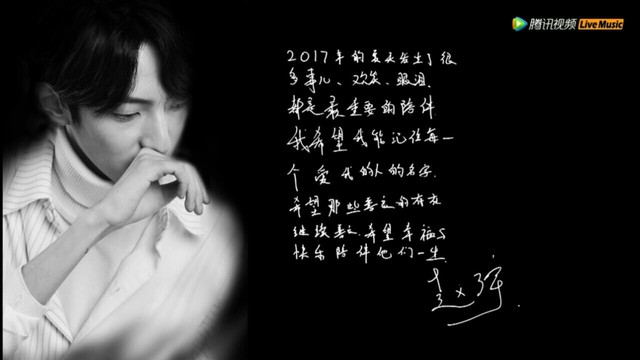 腾讯视频 Live Music
2017年的夏天发生了很
多事儿、欢笑、眼泪
都是最重要的陪伴
我希望我能记住每一
个爱我的人的名字
希望那些喜欢的有在
继续喜欢 希望幸福与
快乐陪伴他们一生